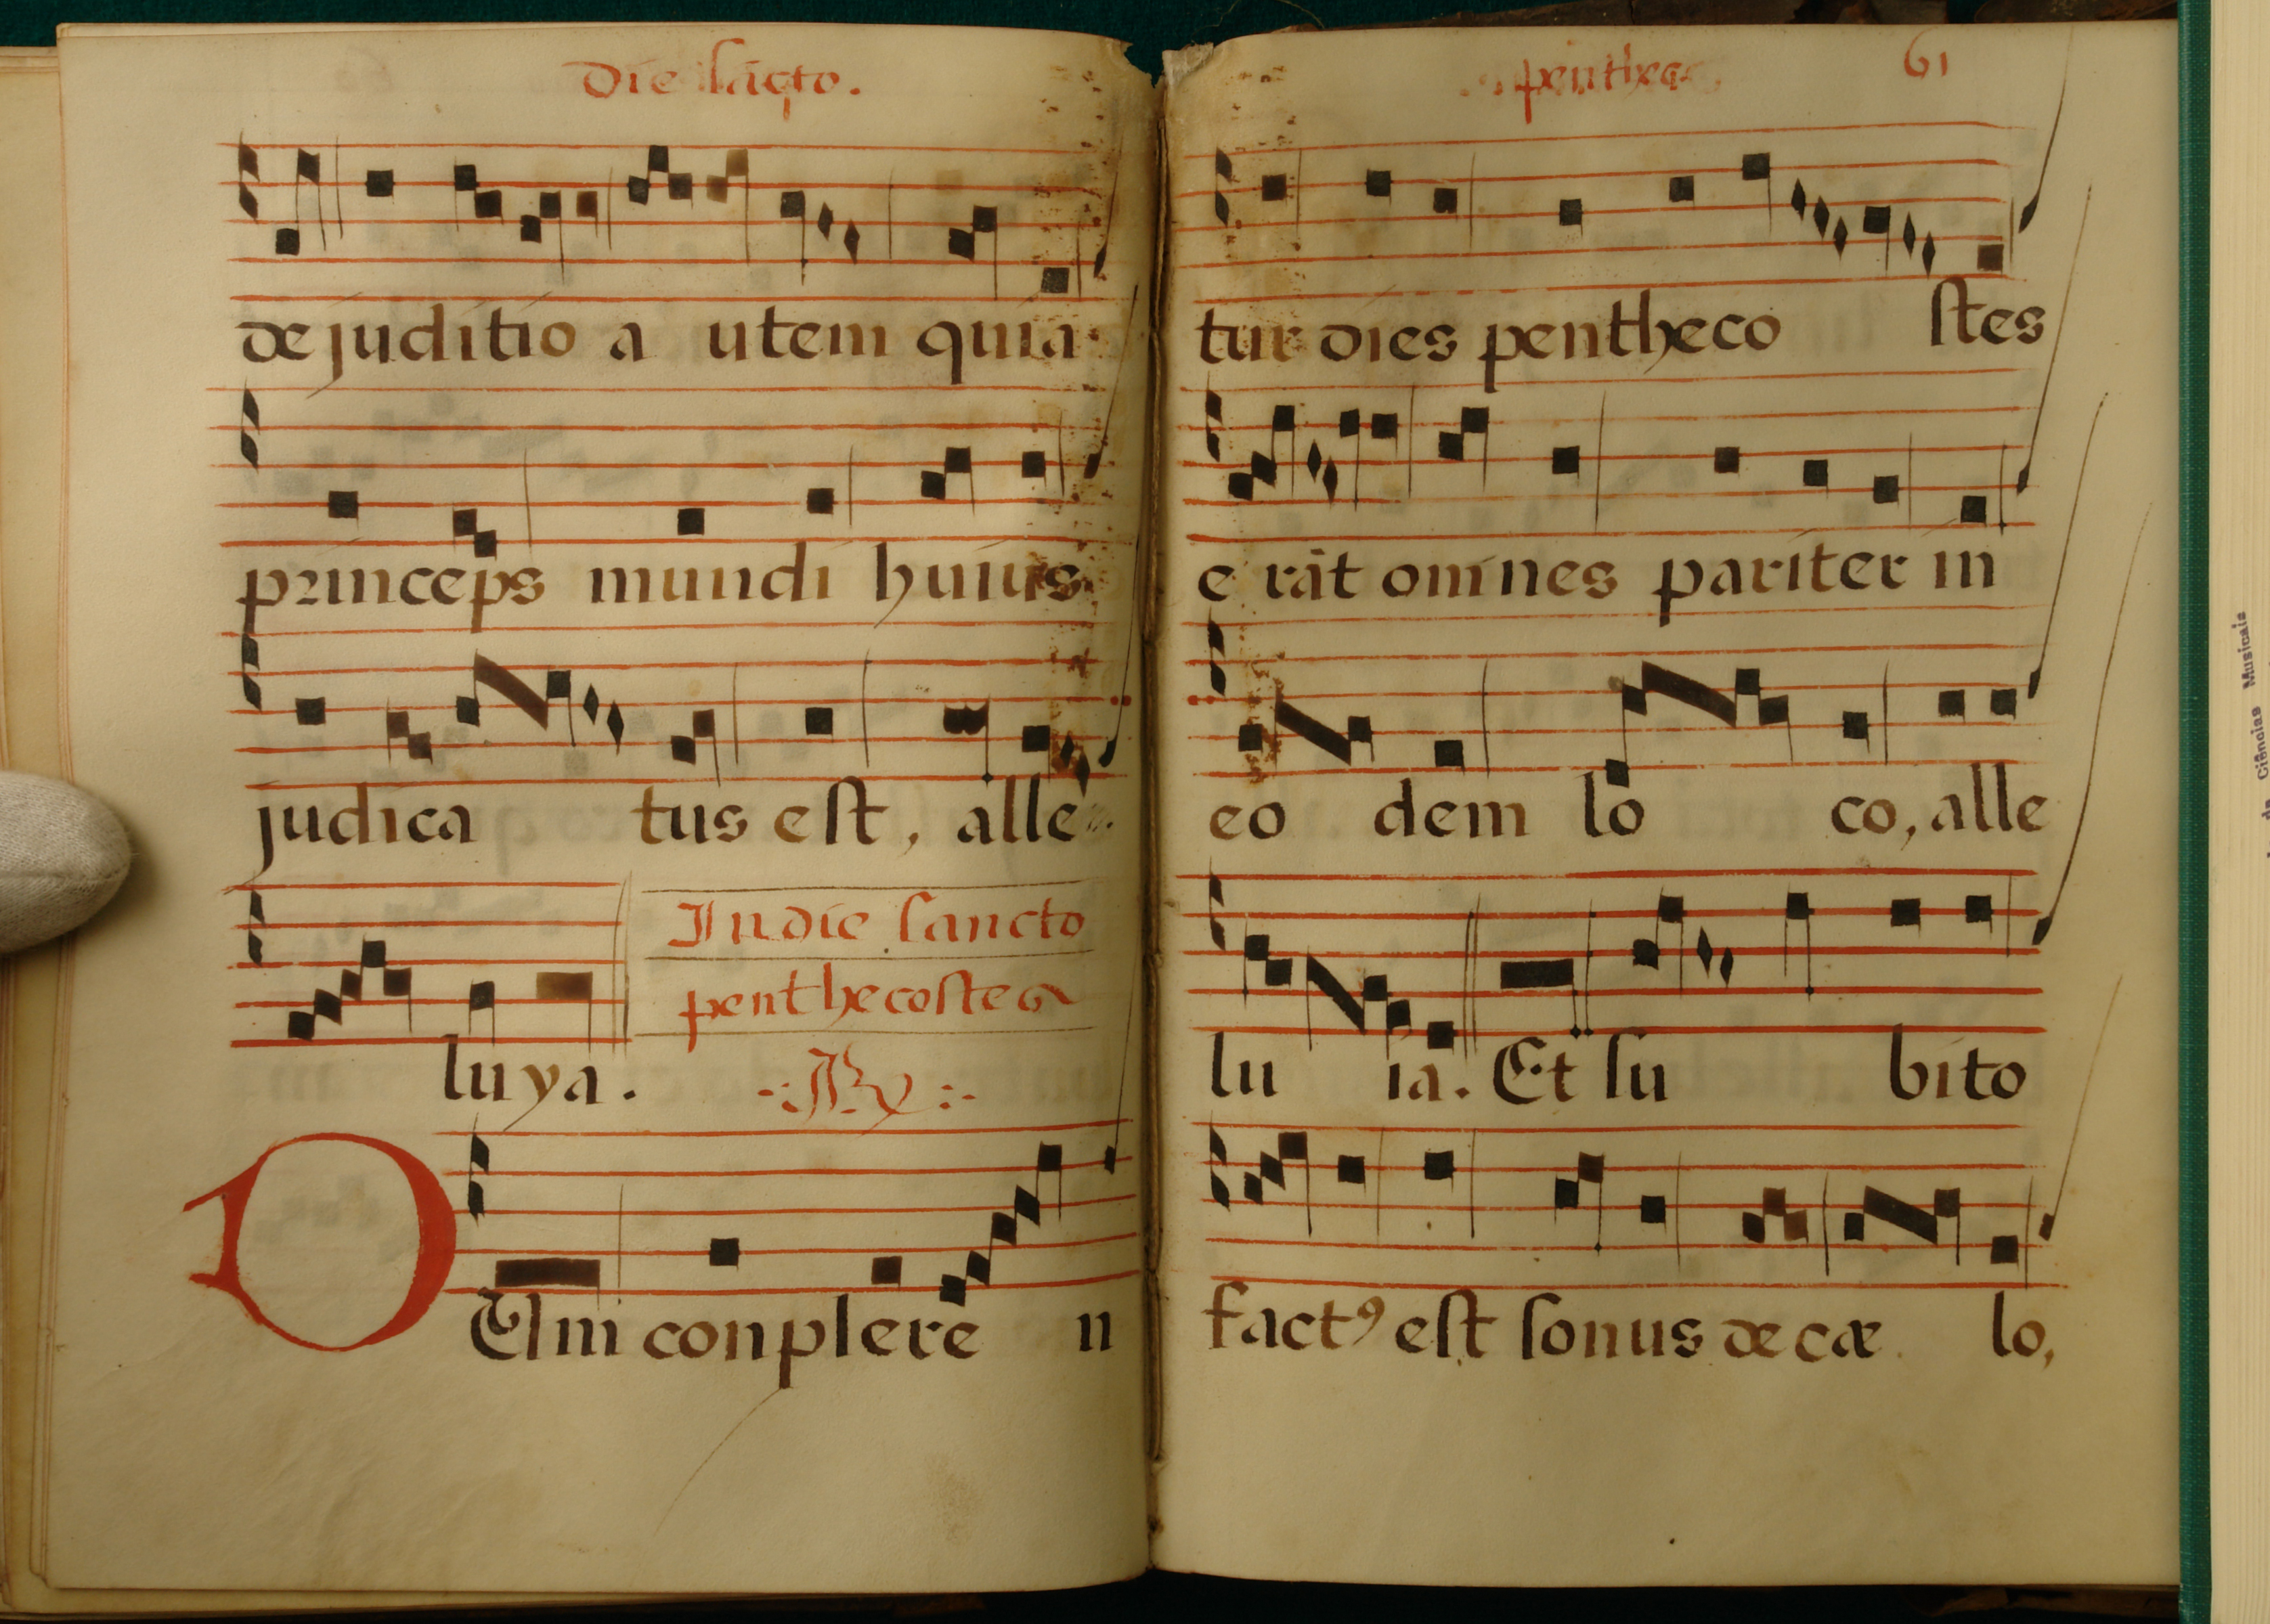 Die sācto.
de juditio a utem quia
princeps mundi huius
judica tus est, alle
luya.
In die sancto
penthecostes
℟
DUm conplere n
penthec
61
tur dies pentheco stes
e rāt omnes pariter in
eo dem lo co, alle
lu ia. Et su bito
factꝰ est sonus de cæ lo,
Ciências Musicais